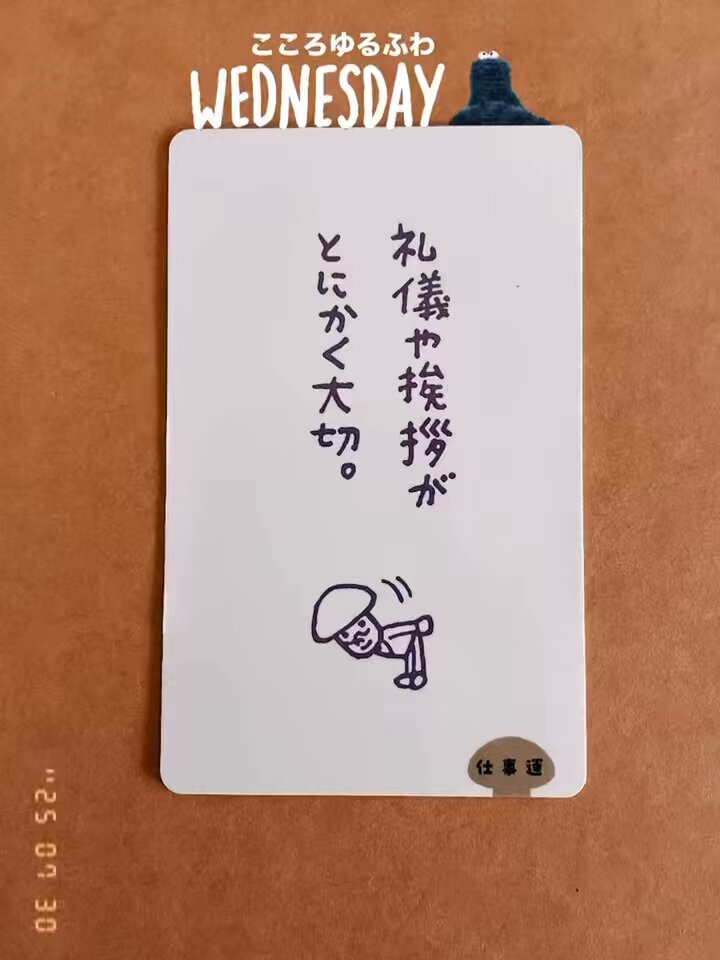 こころゆるふわ
WEDNESDAY
礼儀や挨拶が
とにかく大切。
仕事運
'25 07 30